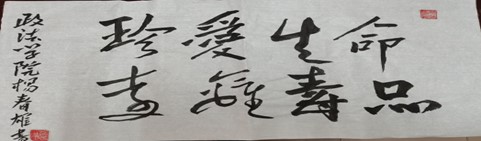 珍愛生命
遠離毒品
政法学院杨春雄书